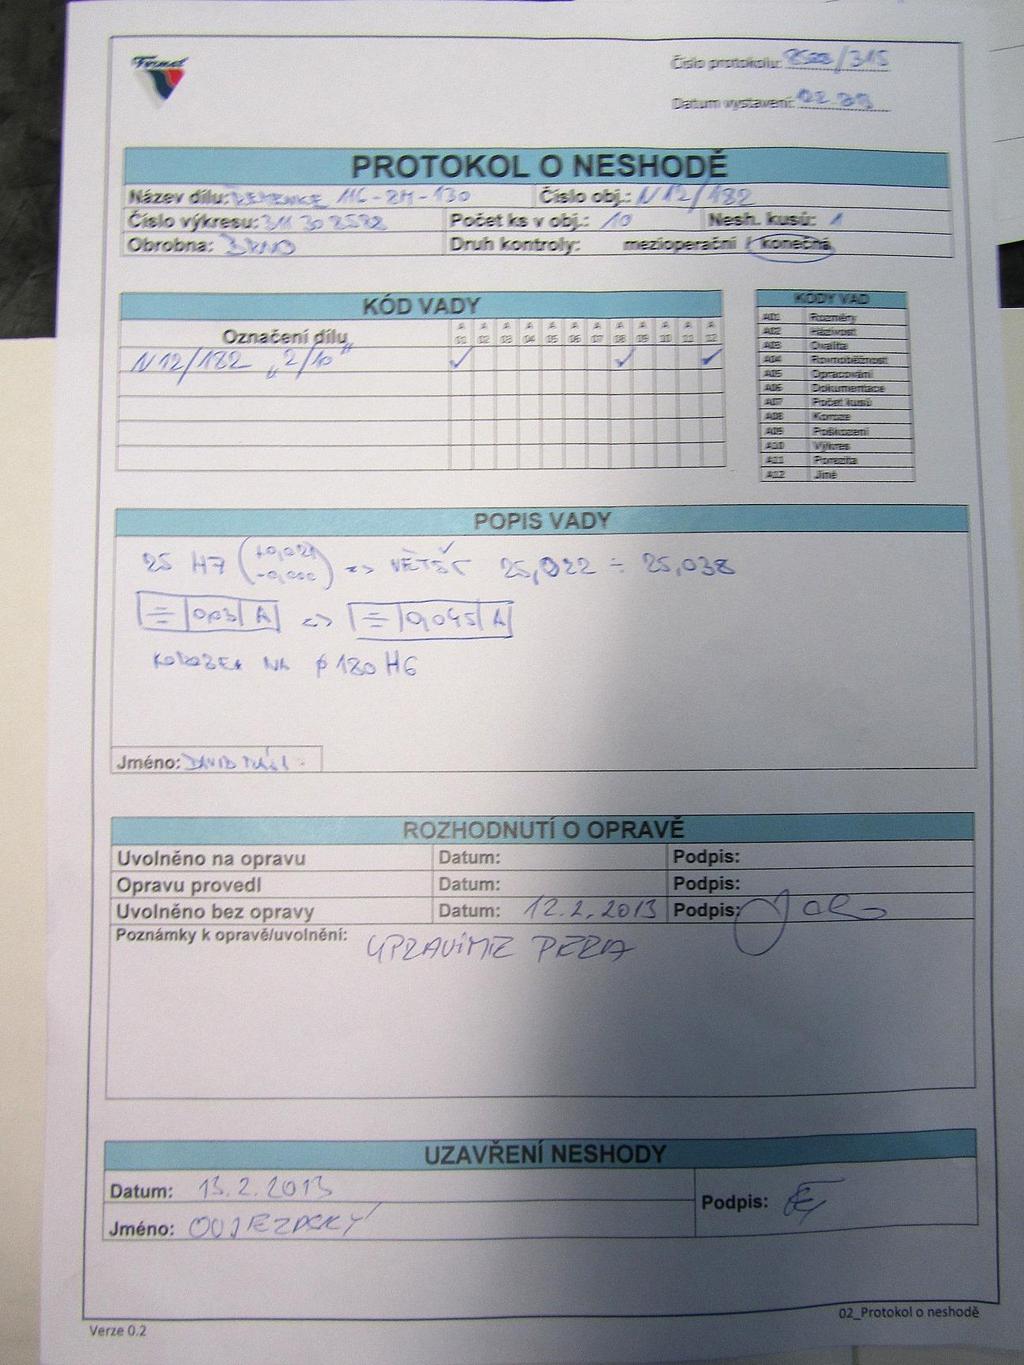 Fermat
Číslo protokolu: 8582/315
Datum vystavení:
PROTOKOL O NESHODĚ
Název dílu: ŘEMENICE 116-8M-130 Číslo obj.: N12/182
Číslo výkresu: 311 30 8582 Počet ks v obj.: 10 Nesh. kusů: 1
Obrobna: BRNO Druh kontroly: mezioperační / konečná
KÓD VADY
Označení dílu A 01 A 02 A 03 A 04 A 05 A 06 A 07 A 08 A 09 A 10 A 11 A 12
N12/182 „2/10" ✓ ✓ ✓
KÓDY VAD
A01 Rozměry
A02 Házivost
A03 Ovalita
A04 Rovnoběžnost
A05 Opracování
A06 Dokumentace
A07 Počet kusů
A08 Koroze
A09 Poškození
A10 Výkres
A11 Porezita
A12 Jiné
POPIS VADY
25 H7 (+0,021 -0,000) => VĚTŠÍ 25,022 ÷ 25,038
= 0,03 A => = 0,045 A
KOROZE NA ø 180 H6
Jméno: DAVID
ROZHODNUTÍ O OPRAVĚ
Uvolněno na opravu Datum: Podpis:
Opravu provedl Datum: Podpis:
Uvolněno bez opravy Datum: 12.2.2013 Podpis:
Poznámky k opravě/uvolnění: UPRAVÍME PERA
UZAVŘENÍ NESHODY
Datum: 13.2.2013 Podpis:
Jméno: OUJEZDSKÝ
02_Protokol o neshodě
Verze 0.2